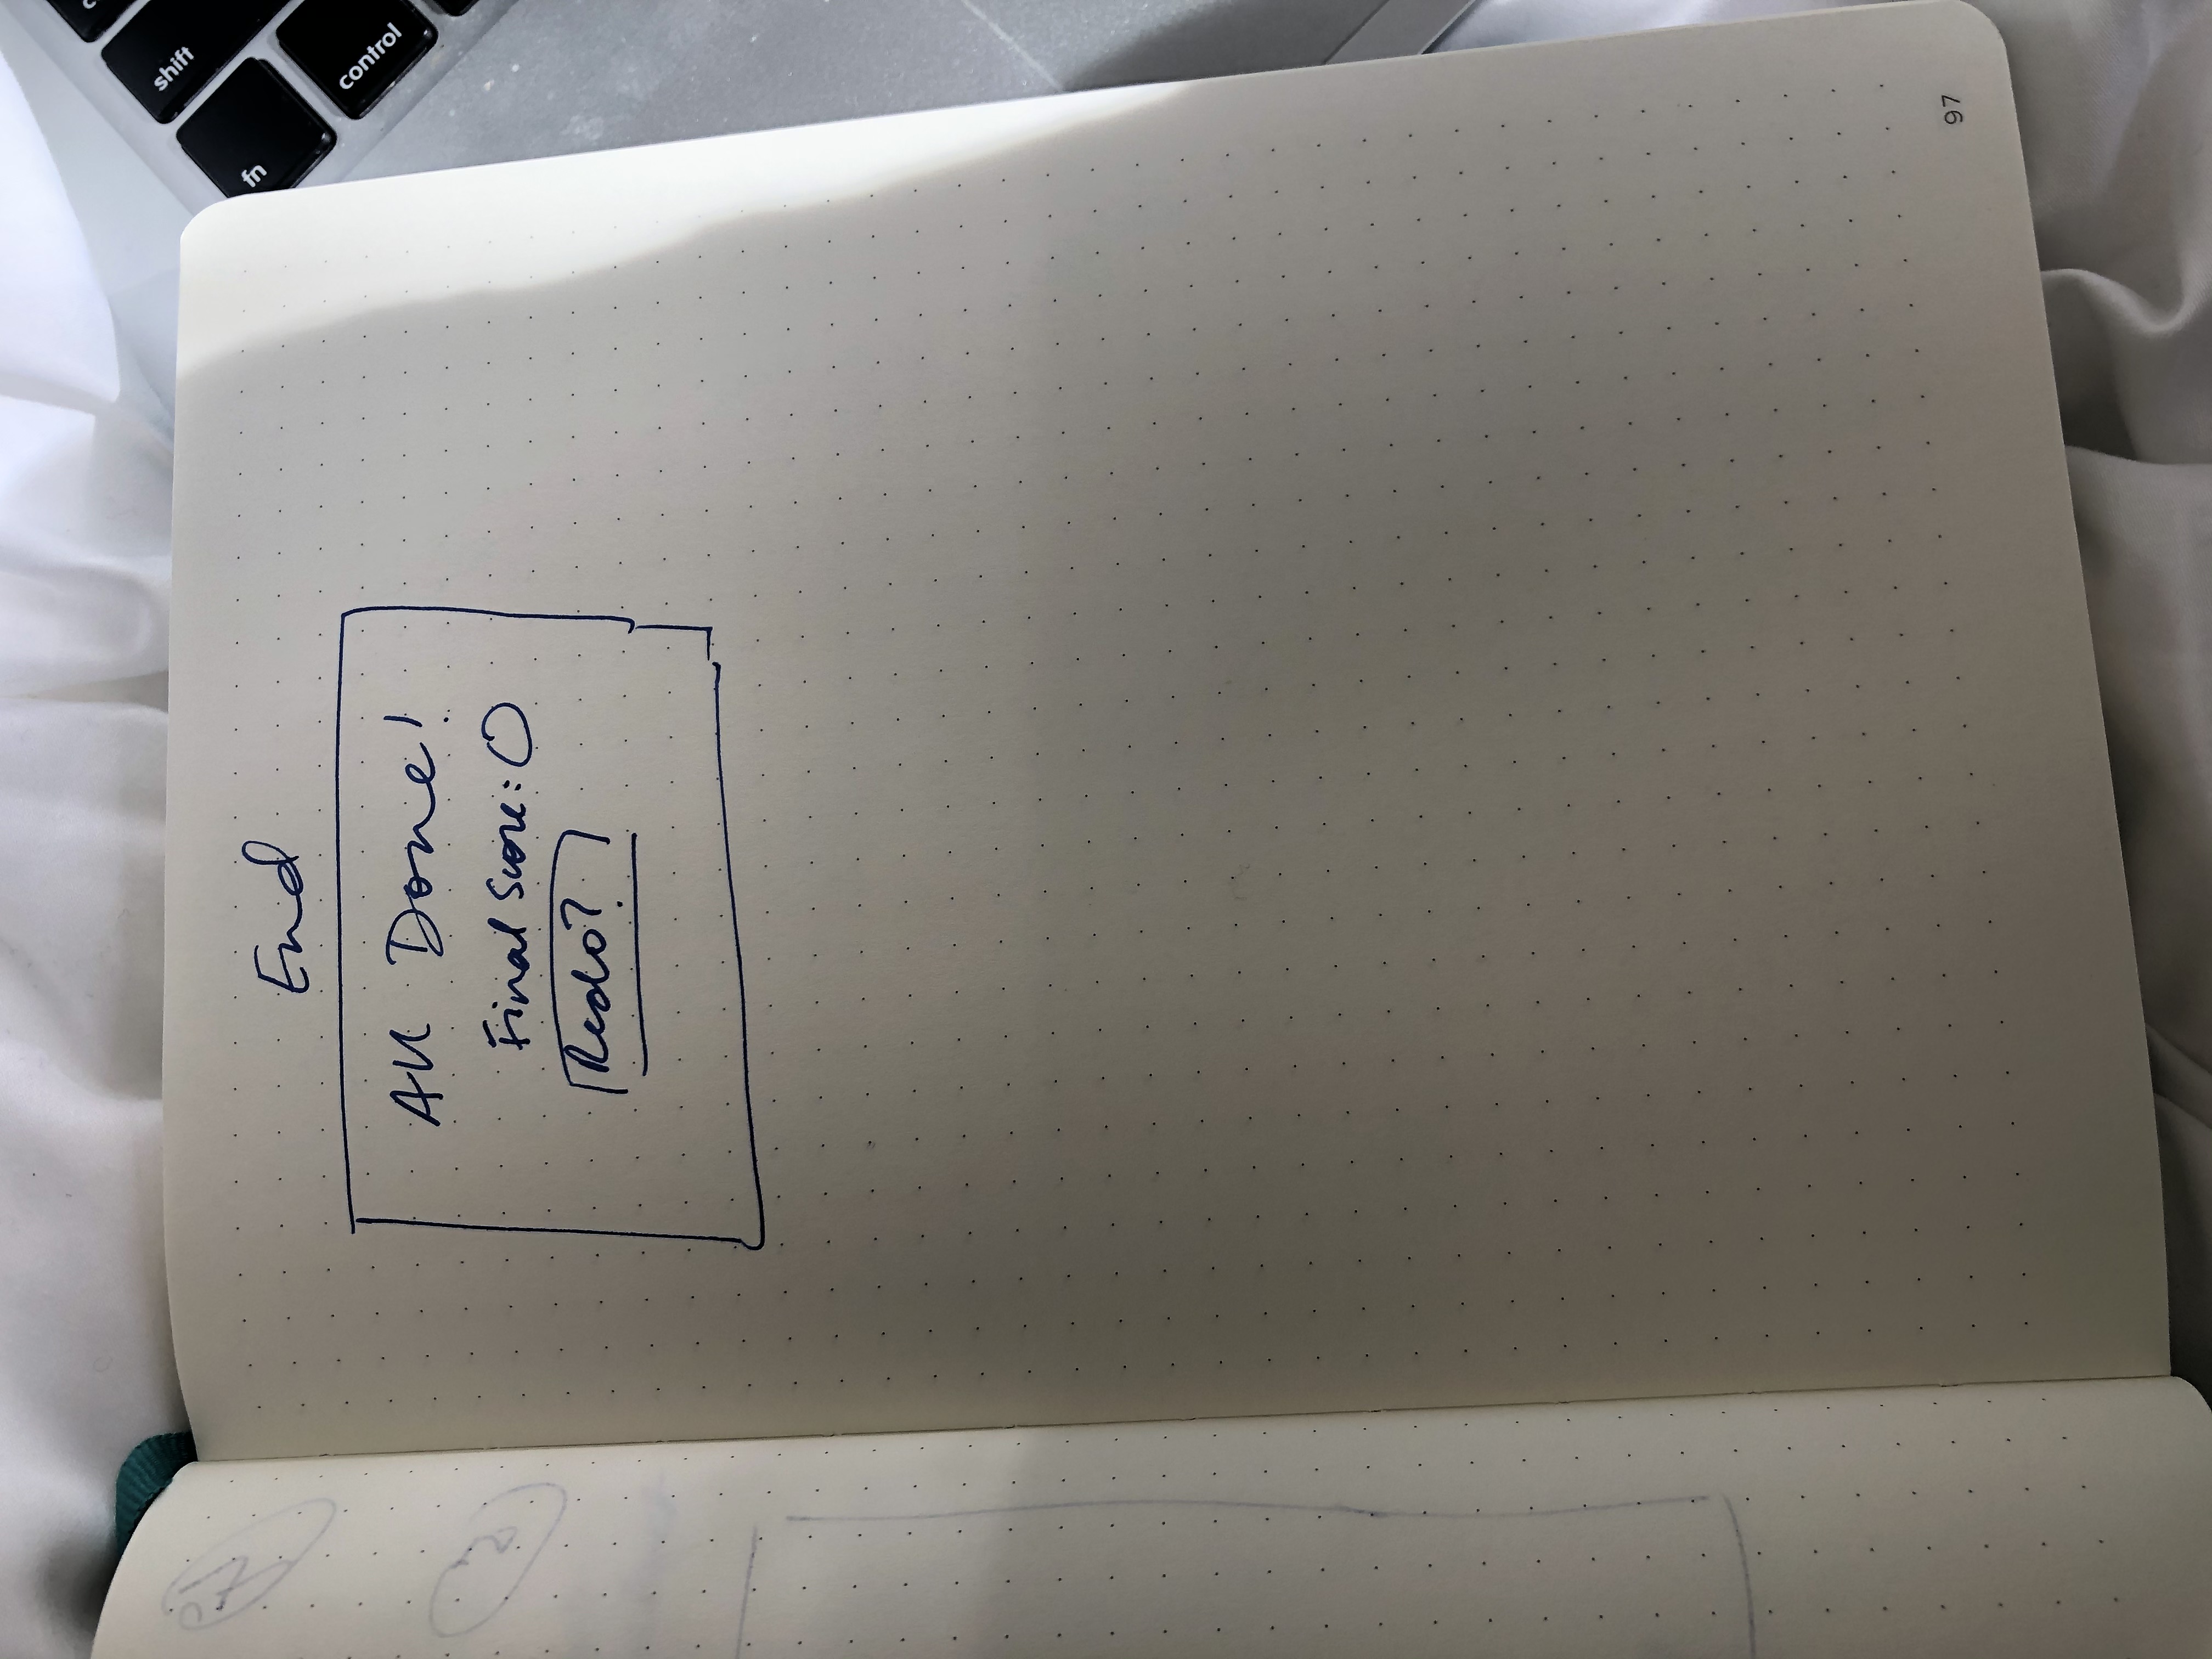 End
All Done!
Final Score: 0
Redo?
97
shift
fn
control